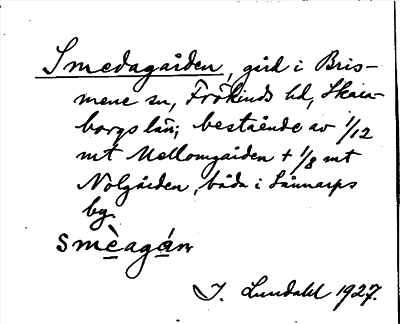 Smedagården, gård i Bris-
mene sn, Frökinds hd, Skara-
borgs län; bestående av 1/12
mt Mellomgården + 1/8 mt
Nolgården, båda i Sånnarps
by.
smèagánꞃ
I. Lundahl 1927.